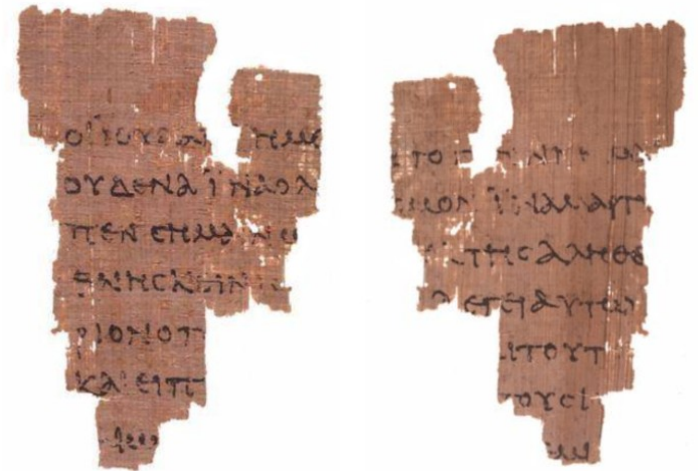 ΟΙΪΟΥΔΑΙ ΗΜΕ
ΟΥΔΕΝΑΪΝΑΟΛ
ΠΕΝϹΗΜΑΙΝΩ
ΘΝΗϹΚΕΙΝ
ΡΙΟΝΟΠ
ΚΑΙΕΙΠ
ΤΟΓ ΝΝΗΜΑΙ
ϹΜΟΝΪΝΑΜΑΡΤΥ
ΤΗϹΑΛΗΘΕ
ΛΕΓΕΙΑΥΤΩ
ΙΤΟΥΤ
ΤΟΥϹΙ